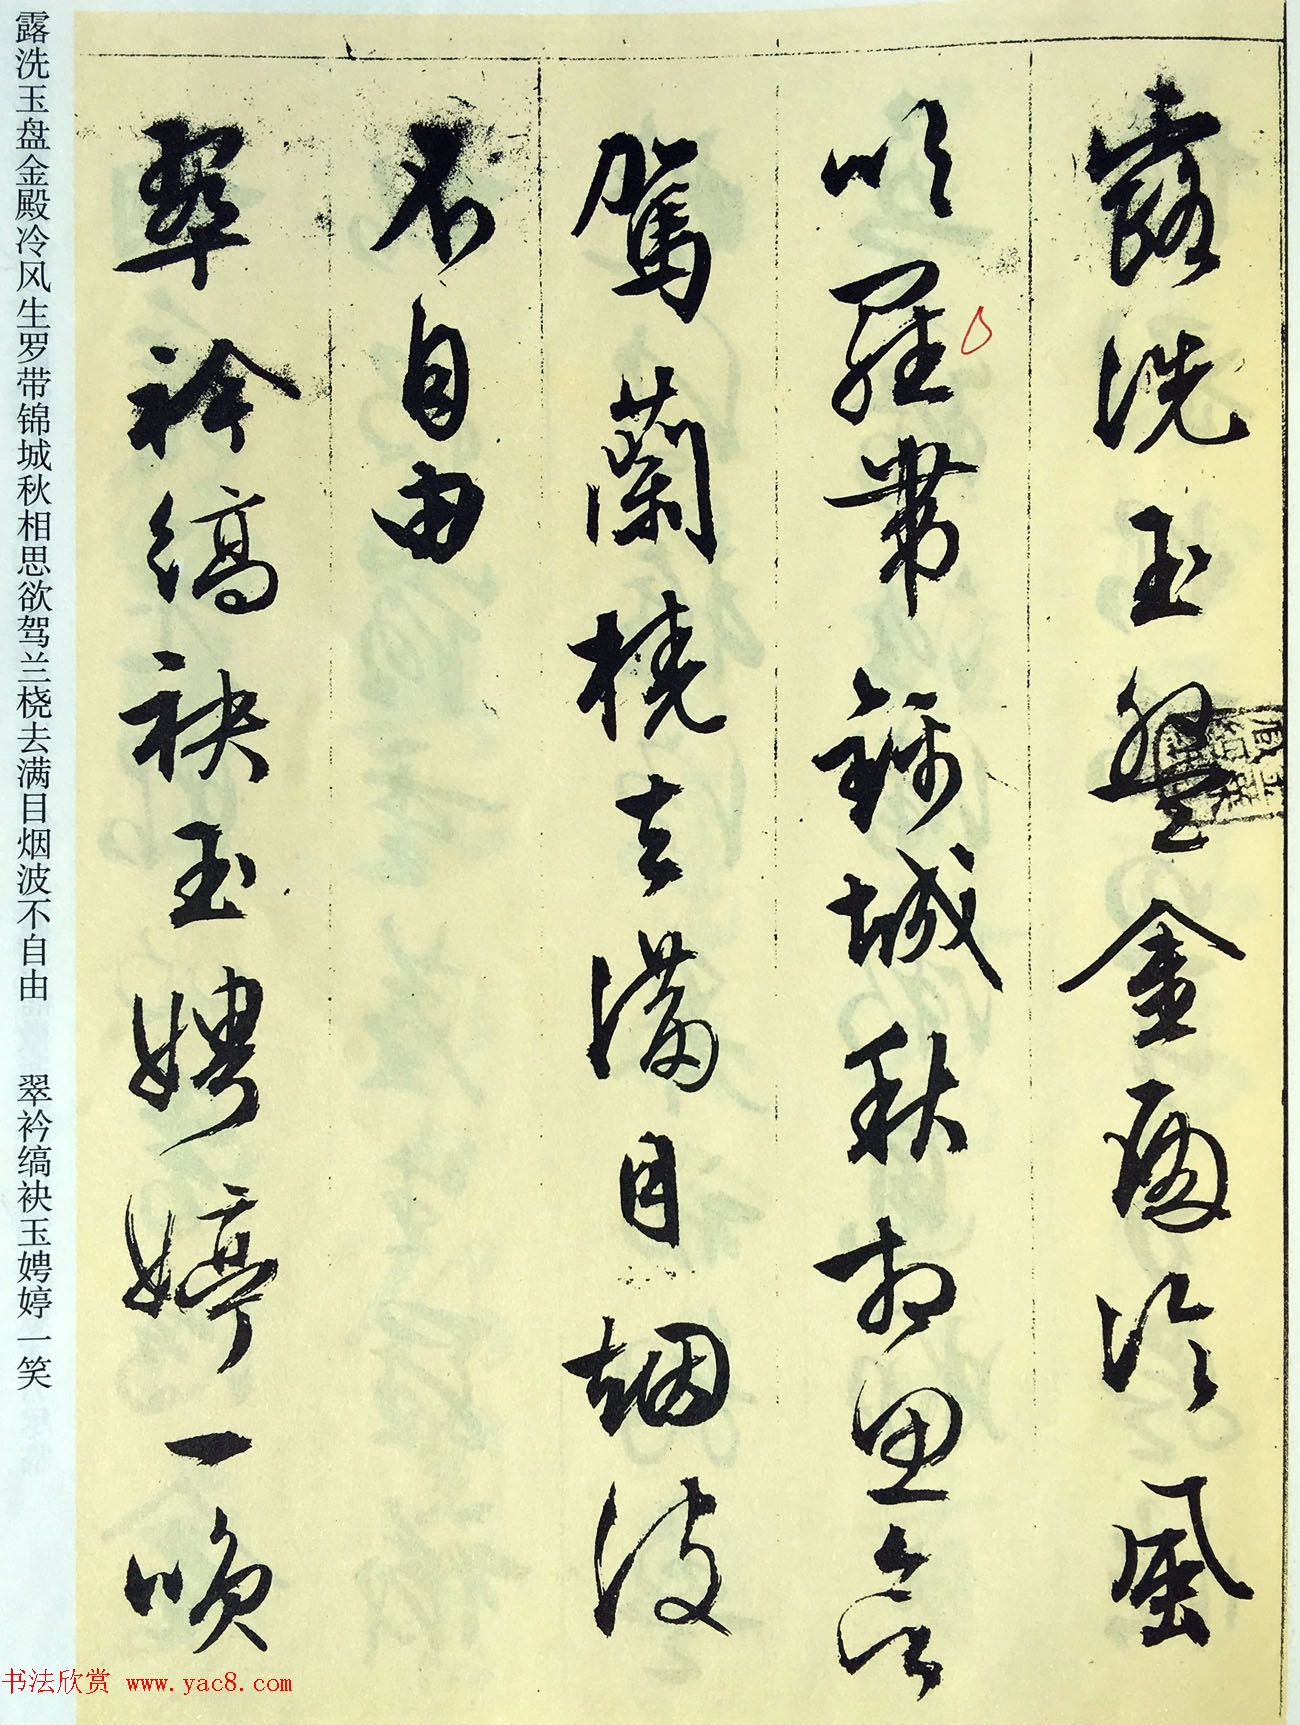 露洗玉盤金殿冷風
吹羅帶錦城秋相思欲
駕蘭橈去滿目烟波
不自由
翠衿縞袂玉娉婷一咲
露洗玉盘金殿冷风生罗带锦城秋相思欲驾兰桡去满目烟波不自由 翠衿缟袂玉娉婷一笑
书法欣赏 www.yac8.com